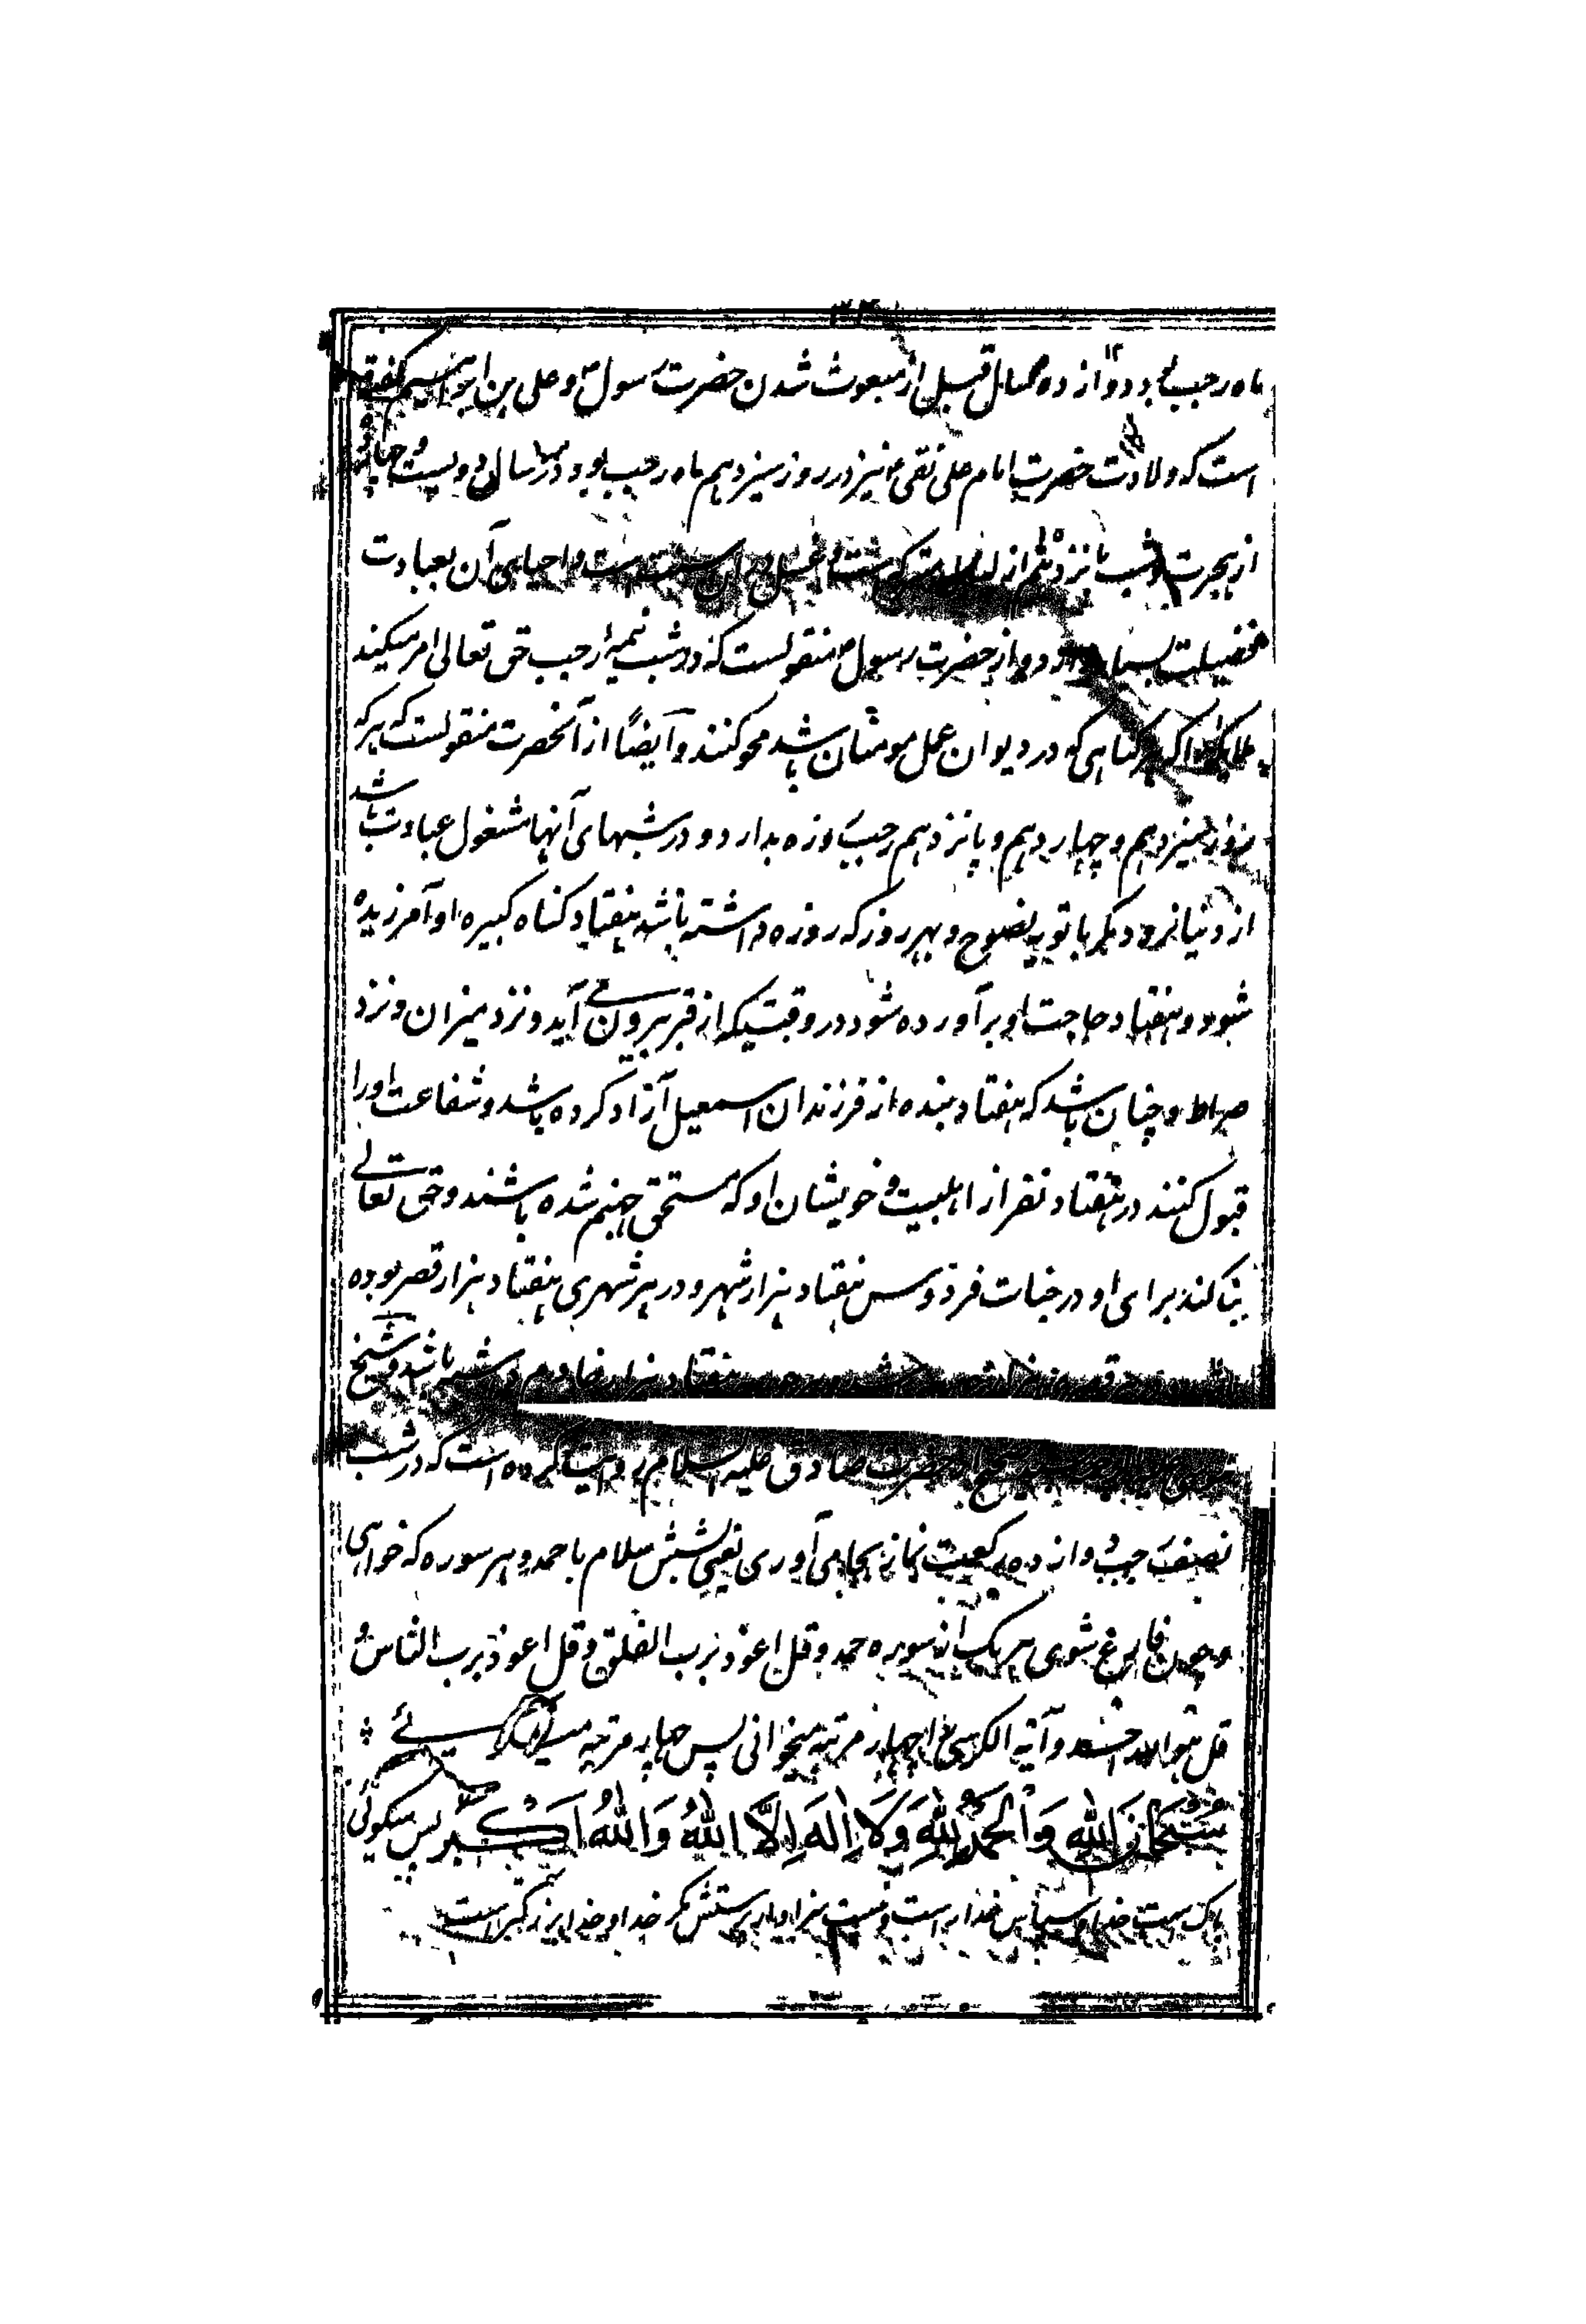 ماه رجب بود دوازده سال قبل از مبعوث شدن حضرت رسول ص و علی بن ابراهیم گفته
است که ولادت حضرت امام علی نقی ع نیز در روز سیزدهم ماه رجب بود در سال دویست و چهارده
از هجرت و شب پانزدهم از لیالی متبرکه است و غسل در آن سنت است و احیای آن بعبادت
فضیلت بسیار دارد و از حضرت رسول ص منقولست که در شب نیمه رجب حق تعالی امر میکند
ملایکه را که هر گناهی که در دیوان عمل مومنان باشد محو کنند و ایضاً از آنحضرت منقولست که هر که
روز سیزدهم و چهاردهم و پانزدهم رجب روزه بدارد و در شبهای آنها مشغول عبادت باشد
از دنیا نرود مگر با توبه نصوح و بهر روز که روزه داشته باشد هفتاد گناه کبیره او آمرزیده
شود و هفتاد حاجت او برآورده شود در وقتیکه از قبر بیرون می آید و نزد میزان و نزد
صراط و چنان باشد که هفتاد بنده از فرزندان اسمعیل آزاد کرده باشد و شفاعت او را
قبول کنند در هفتاد نفر از اهلبیت و خویشان او که مستحق جهنم شده باشند و حق تعالی
بنا کند برای او در جنات فردوس هفتاد هزار شهر و در هر شهری هفتاد هزار قصر بوده
هفتاد هزار خادم داشته باشد و شیخ
حضرت صادق علیه السلام روایت کرده است که در شب
نصف رجب دوازده رکعت نماز بجا می آوری یعنی شش سلام با حمد و هر سوره که خواهی
و چون فارغ شوی هر یک از سوره حمد و قل اعوذ برب الفلق و قل اعوذ برب الناس و
قل هو الله احد و آیة الکرسی را چهار مرتبه میخوانی پس چهار مرتبه میگوئی
سُبْحَانَ اللهِ وَالْحَمْدُ لِلّٰهِ وَلَا إِلٰهَ إِلَّا اللهُ وَاللهُ أَكْبَر پس میگوئی
پاک است خدا و سپاس خدا راست و نیست سزاوار پرستش مگر خدا و خدا بزرگتر است